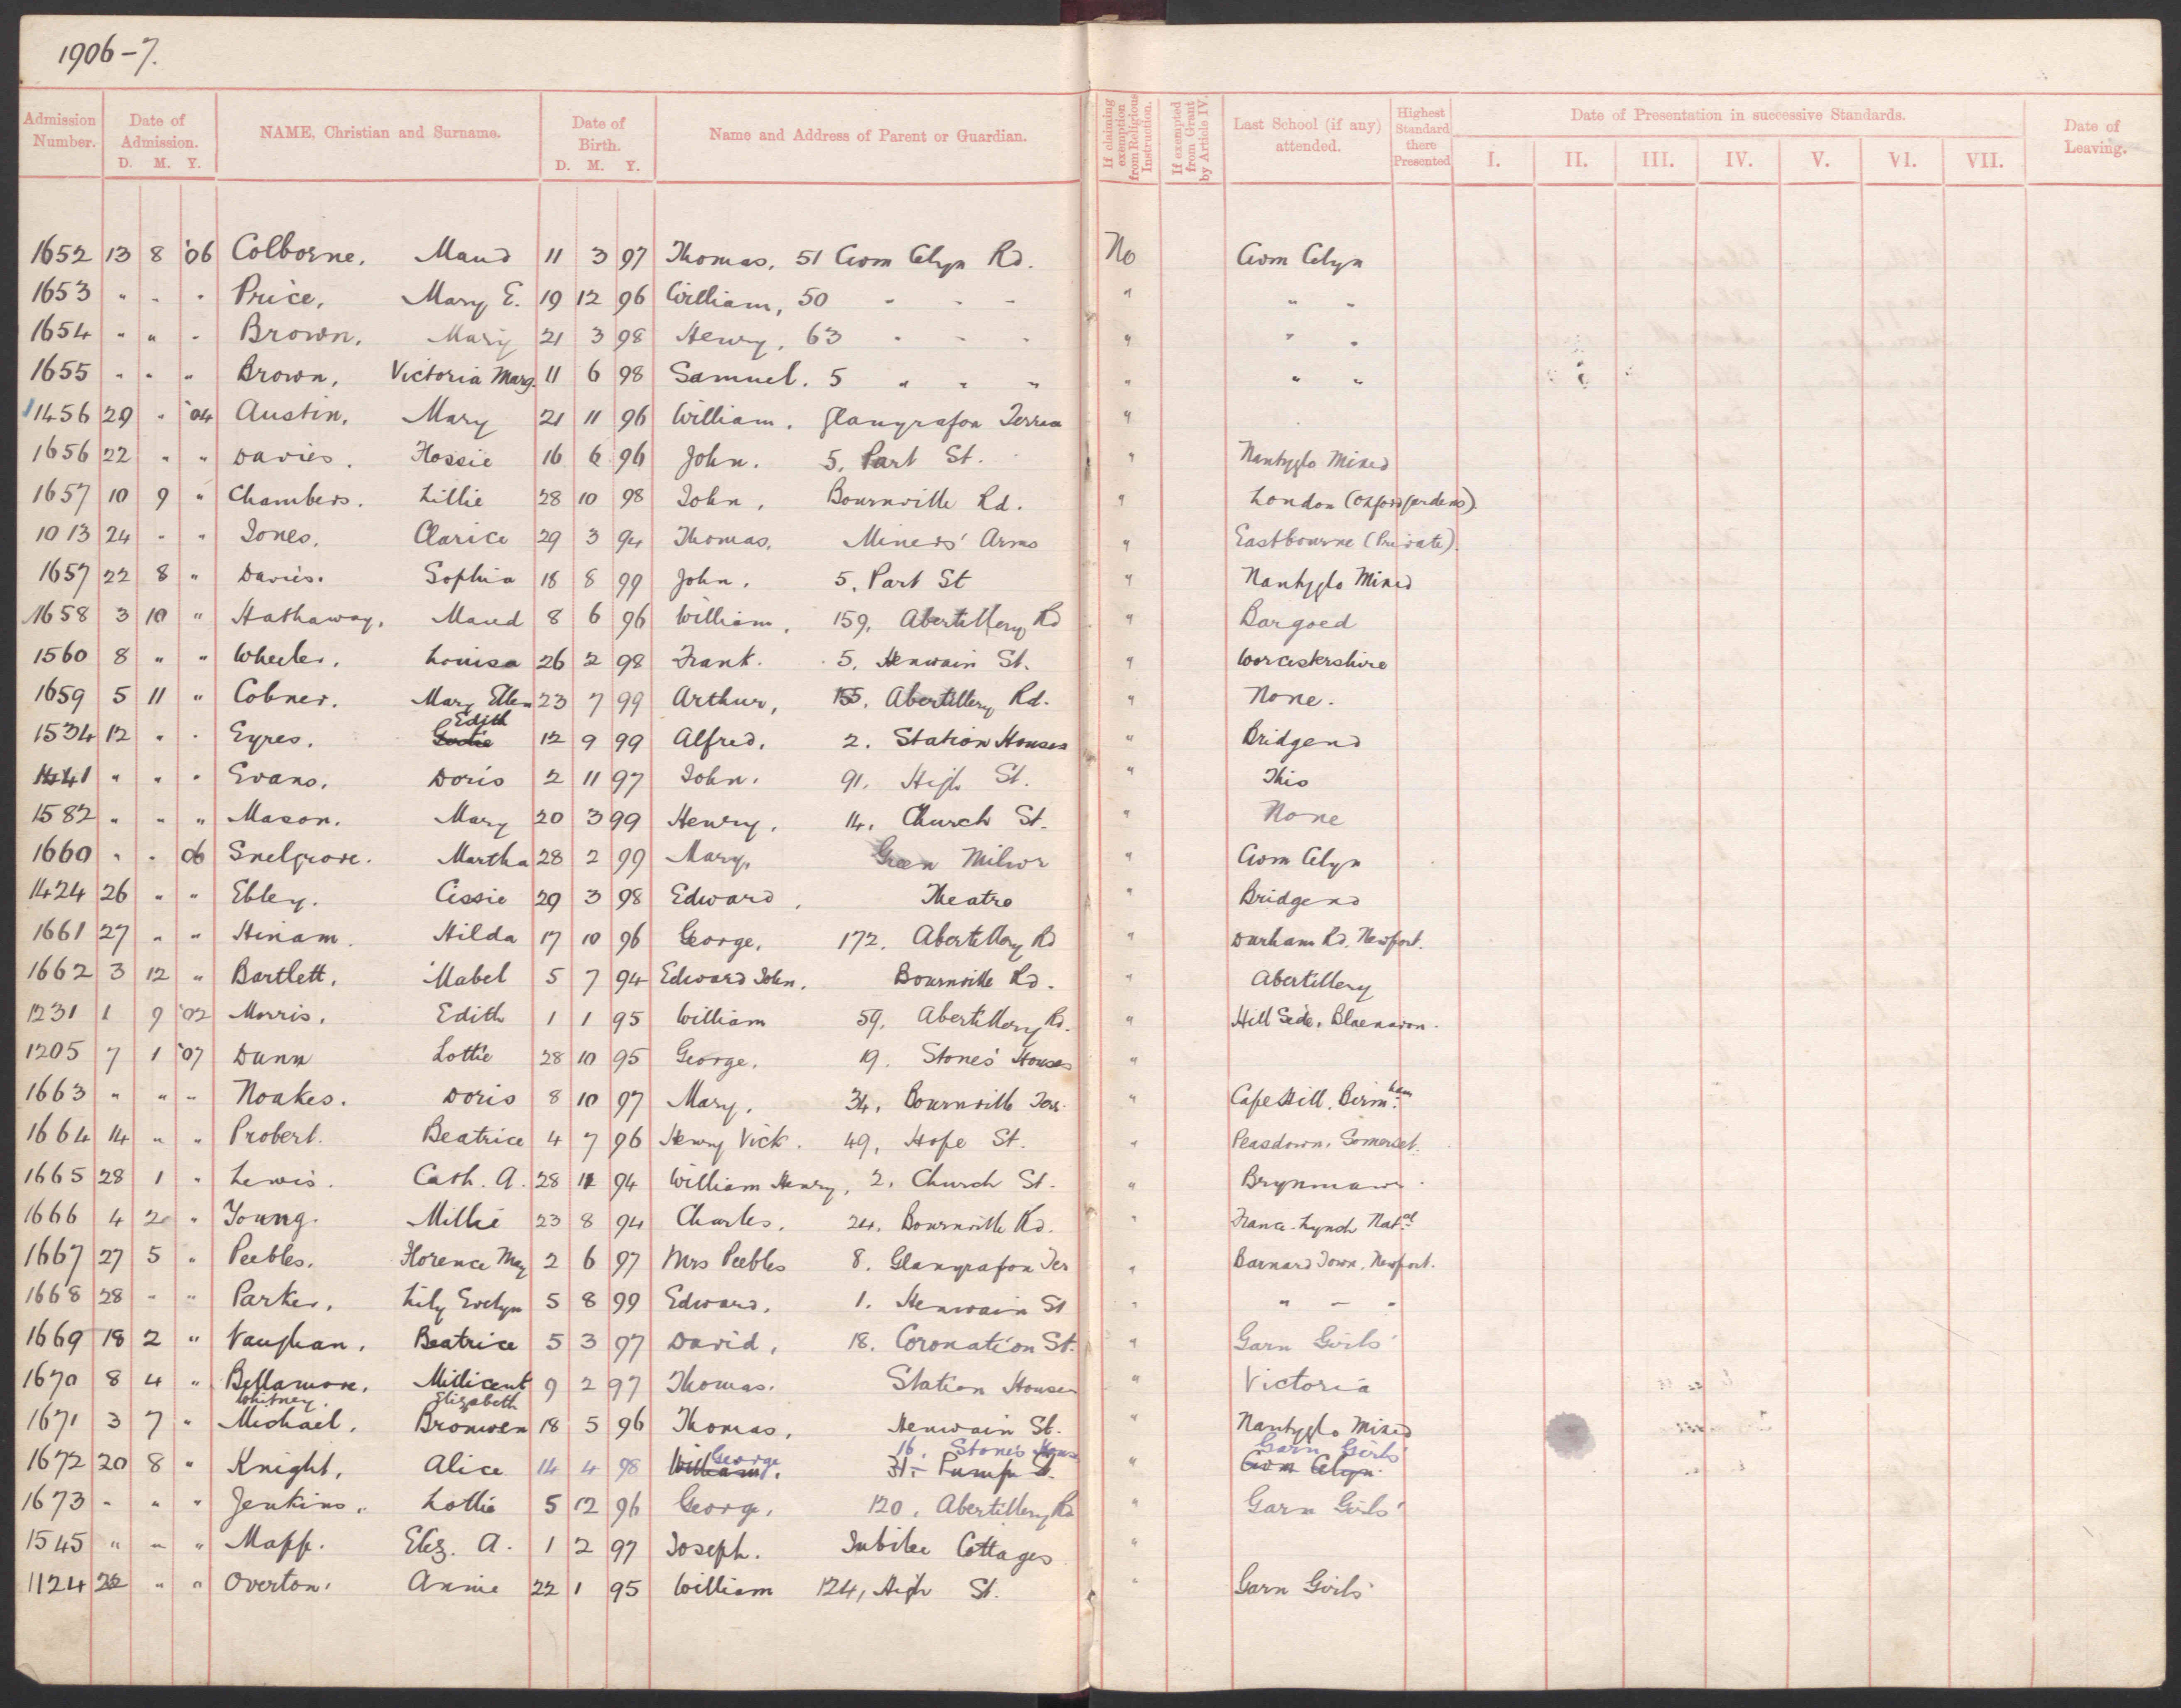 1906-7.
Admission Number. Date of Admission. D. M. Y. NAME, Christian and Surname. Date of Birth. D. M. Y. Name and Address of Parent or Guardian. If claiming exemption from Religious Instruction. If exempted from Grant by Article IV. Last School (if any) attended. Highest Standard there Presented Date of Presentation in successive Standards. I. II. III. IV. V. VI. VII. Date of Leaving.
1652 13 8 '06 Colborne, Maud 11 3 97 Thomas, 51 Cwm Celyn Rd. No Cwm Celyn
1653 " " " Price, Mary E. 19 12 96 William, 50 " " " " " "
1654 " " " Brown, Mary 21 3 98 Henry, 63 " " " " " "
1655 " " " Brown, Victoria Marg. 11 6 98 Samuel. 5 " " " " " "
1456 29 " '04 Austin, Mary 21 11 96 William. Glanyrafon Terrace "
1656 22 " " Davies. Flossie 16 6 96 John. 5, Part St. " Nantyglo Mixed
1657 10 9 " Chambers. Lillie 28 10 98 John, Bournville Rd. " London (Oxford Gardens).
1013 24 " " Jones, Clarice 29 3 94 Thomas, Miners' Arms " Eastbourne (Private).
1657 22 8 " Davies. Sophia 18 8 99 John. 5, Part St " Nantyglo Mixed
1658 3 10 " Hathaway, Maud 8 6 96 William, 159, Abertillery Rd " Bargoed
1560 8 " " Wheeler. Louisa 26 2 98 Frank. 5, Henwain St. " Worcestershire
1659 5 11 " Cobner. Mary Ellen 23 7 99 Arthur, 155, Abertillery Rd. " None.
1534 12 " " Eyres. Edith 12 9 99 Alfred. 2. Station Houses " Bridgend
1441 " " " Evans. Doris 2 11 97 John. 91. High St. " This
1582 " " " Mason. Mary 20 3 99 Henry. 14, Church St. " None
1660 " " 06 Snelgrove. Martha 28 2 99 Mary, Green " Cwm Celyn
1424 26 " " Ebley. Cissie 29 3 98 Edward, Theatre " Bridgend
1661 27 " " Hinam. Hilda 17 10 96 George, 172. Abertillery Rd " Durham Rd. Newport.
1662 3 12 " Bartlett. Mabel 5 7 94 Edward John, Bournville Rd. " Abertillery
1231 1 9 '02 Morris. Edith 1 1 95 William 59, Abertillery Rd. " Hill Side, Blaenavon.
1205 7 1 '07 Dunn Lottie 28 10 95 George, 19. Stones' Houses "
1663 " " " Noakes. Doris 8 10 97 Mary. 34, Bournville Terr. " Cape Hill. Birm.ham
1664 14 " " Probert. Beatrice 4 7 96 Henry Vick. 49, Hope St. " Peasdown. Somerset.
1665 28 1 " Lewis. Cath. A. 28 94 William Henry, 2, Church St. " Brynmawr.
1666 4 2 " Young. Millie 23 8 94 Charles. 24. Bournville Rd. " France Lynch Nat.al
1667 27 5 " Peebles. Florence May 2 6 97 Mrs Peebles 8. Glanyrafon Ter " Barnard Town, Newport.
1668 28 " " Parker. Lily Evelyn 5 8 99 Edward. 1. Henwain St " " " "
1669 18 2 " Vaughan. Beatrice 5 3 97 David, 18. Coronation St. " Garn Girls'
1670 8 4 " Bellamore. Millicent 9 2 97 Thomas. Station Houses " Victoria
Whitney Elizabeth
1671 3 7 " Michael. Bronwen 18 5 96 Thomas. Henwain St. " Nantyglo Mixed
George 16, Stones House Garn Girls'
1672 20 8 " Knight, Alice 14 4 98 William. 31. Pump St. " Cwm Celyn.
1673 " " " Jenkins. Lottie 5 12 96 George. 120, Abertillery Rd " Garn Girls'
1545 " " " Mapp. Eliz. A. 1 2 97 Joseph. Jubilee Cottages "
1124 22 " " Overton. Annie 22 1 95 William 124, High St. " Garn Girls'